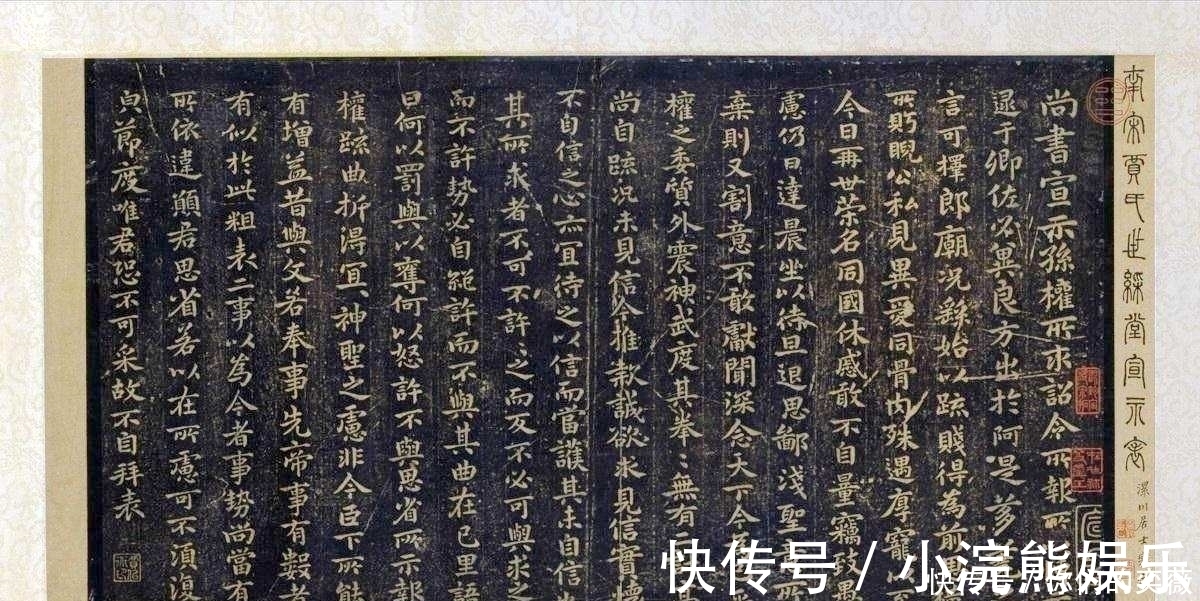 南宋賈氏世綵堂宣示表
尚書宣示孫權所求詔令所報所
逮于卿佐必冀良方出於阿是芻
言可擇郎廟況繇始以疏賤得為前
所眄睨公私見異愛同骨肉殊遇厚寵以
今日再世榮名同國休慼敢不自量竊致愚
慮仍日達晨坐以待旦退思鄙淺聖
棄則又割意不敢獻聞深念天下今
權之委質外震神武度其拳〻無有
尚自疏況未見信今推款誠欲求見信實懷
不自信之心亦宜待之以信而當護其未自信
其所求者不可不許〻之而反不必可與求之
而不許勢必自絕許而不與其曲在己里語
曰何以罰與以奪何以怒許不與思省所示報
權疏曲折得宜〻神聖之慮非今臣下所能
有增益昔與文若奉事先帝事有數者
有似於此粗表二事以為今者事勢尚當有
所依違願君思省若以在所慮可不須復
皃節度唯君恐不可采故不自拜表
快传号 / 小浣熊娱乐